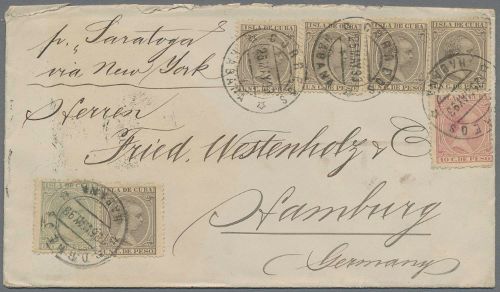 ISLA DE CUBA ISLA DE CUBA ISLA DE CUBA ISLA DE CUBA
p. "Saratoga"
via New York
HABANA
10 C. DE PESO
Herren
Fried. Westenholz & C
ISLA DE CUBA
DE PESO
HABANA
Hamburg
Germany